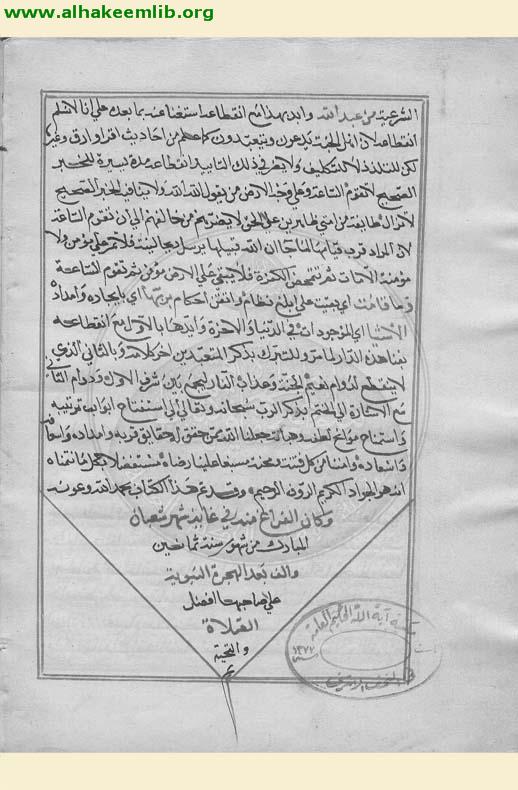 www.alhakeemlib.org
الشرعية من عبد الله وابد بهذا مع انقطاعه استغناء عنه بما بعده على انا لا نسلم
انقطاعه لان اهل الجنة يدعون ويتعبدون كما علم من احاديث اقرا وارق وغيره
لكن للتلذذ لا للتكليف ولا يضر في ذلك التابيد انقطاعه مدة يسيرة للخبر
الصحيح لا تقوم الساعة وعلى وجه الارض من يقول الله الله ولا ينافيه الخبر الصحيح
لا تزال طايفة من امتي ظاهرين على الحق لا يضرهم من خالفهم الى ان تقوم الساعة
لان المراد قرب قيامها لما جا ان الله قبيلها يرسل ريحا لينة فلا تمر على مؤمن ولا
مؤمنة الا مات ثم تتمحض الكفرة فلا يبقى على الارض مؤمن ثم تقوم الساعة
وما قامت اي بقيت على ابلغ نظام واتقن احكام بربها اي بايجاده وامداده
الاشيا اي الموجودات في الدنيا والاخرة وابدها بالاول مع انقطاعه
بفنا هذه الدار لما مر وللتبرك بذكر المتعبدين اخر كلامه وبالثاني الذي
لا ينقطع لدوام نعيم الجنة وعذاب النار ليجمع بين شرف الاول ودوام الثاني
مع الاشارة الى الختم بذكر الرب سبحانه وتعالى الى استفتاح ابواب تربيته
واستمناح مواهب لطفه وهباته جعلنا الله ممن حقق له حقايق قربه وامداده واسعافه
واسعاده وامننا من كل فتنة ومحنة مسبغا علينا رضاه متفضلا بكل ما تمناه
انه هو الجواد الكريم الرؤف الرحيم وقد تم هذا الكتاب بحمد الله وعونه
وكان الفراغ منه في غاية شهر شعبان
المبارك من شهور سنة ثمانين
والف بعد الهجرة النبوية
على صاحبها افضل
الصلاة
والتحية
تم
مكتبة آية الله الحكيم العامة
١٣٧٧
النجف الاشرف